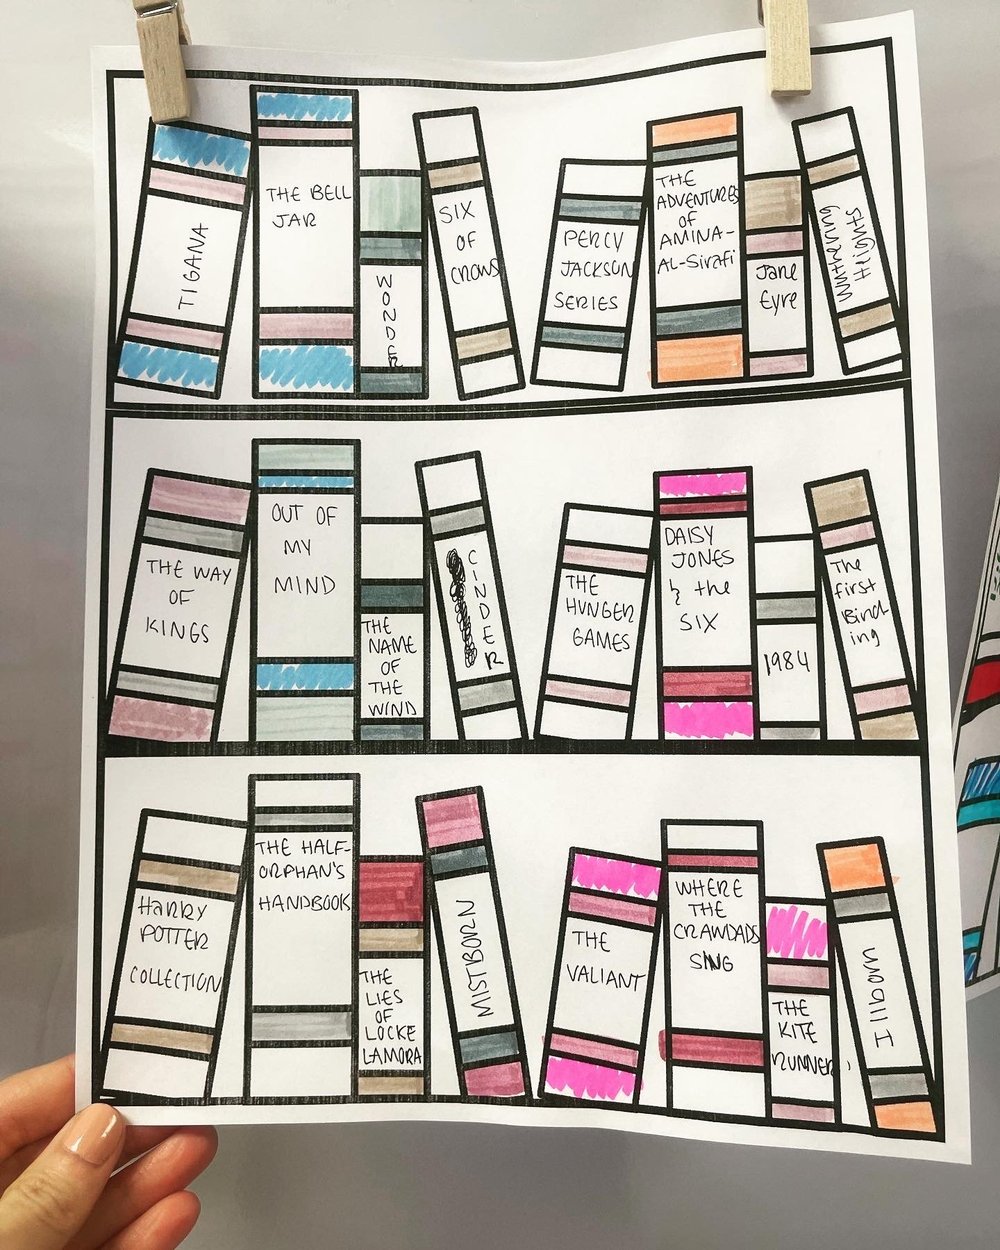 TIGANA
THE BELL
JAR
WONDER
SIX
OF
CROWS
PERCY
JACKSON
SERIES
THE
ADVENTURES
OF
AMINA-
AL-Sirafi
Jane
Eyre
Wuthering
Heights
THE WAY
OF
KINGS
OUT OF
MY
MIND
THE
NAME
OF
THE
WIND
CINDER
THE
HUNGER
GAMES
DAISY
JONES
& the
SIX
1984
The
first
Bind
ing
HARRY
POTTER
COLLECTION
THE HALF-
ORPHAN'S
HANDBOOK
THE
LIES
OF
LOCKE
LAMORA
MISTBORN
THE
VALIANT
WHERE
THE
CRAWDADS
SING
THE
KITE
RUNNER
Illborn